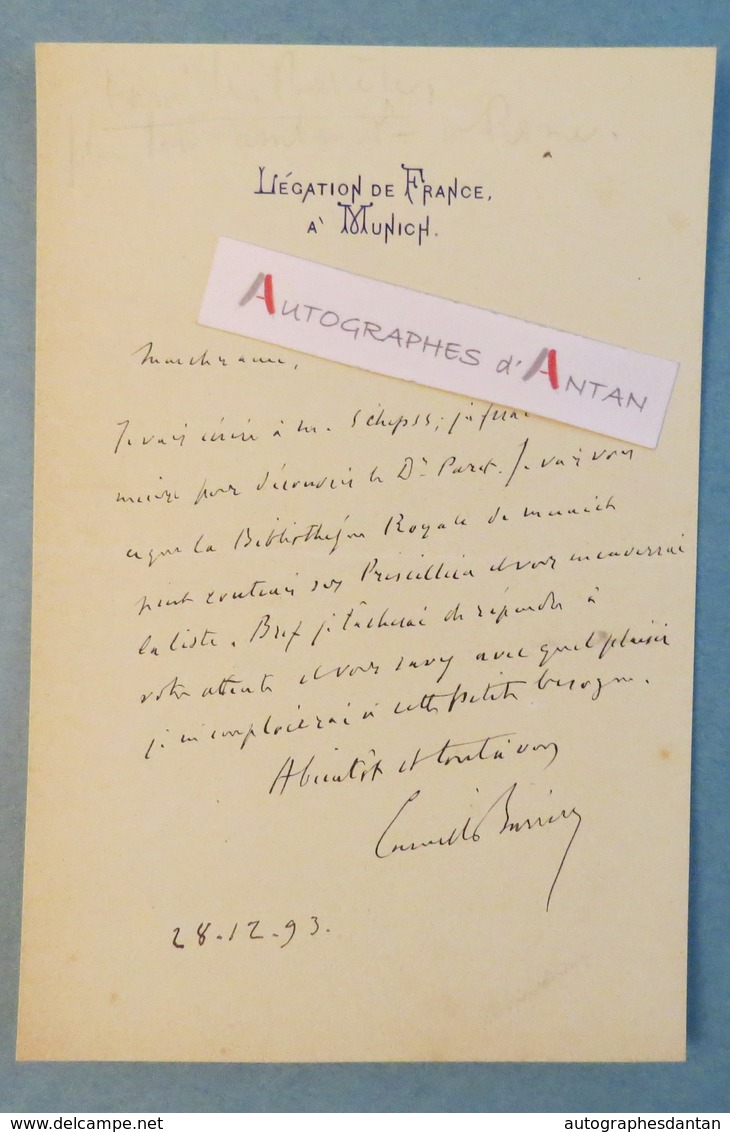 LÉGATION DE FRANCE,
À MUNICH.
AUTOGRAPHES d'ANTAN
Mon cher ami,
Je vais écrire à M. Schepss; je ferai
mieux pour découvrir le Dr Paret. Je vais voir
ce que la Bibliothèque Royale de Munich
peut contenir sur Priscillien et vous en enverrai
la liste. Bref je tâcherai de répondre à
votre attente et vous savez avec quel plaisir
je m'emploierai à cette petite besogne.
A bientôt et tout à vous
Camille Barrère
28.12.93.
www.delcampe.net
autographesdantan